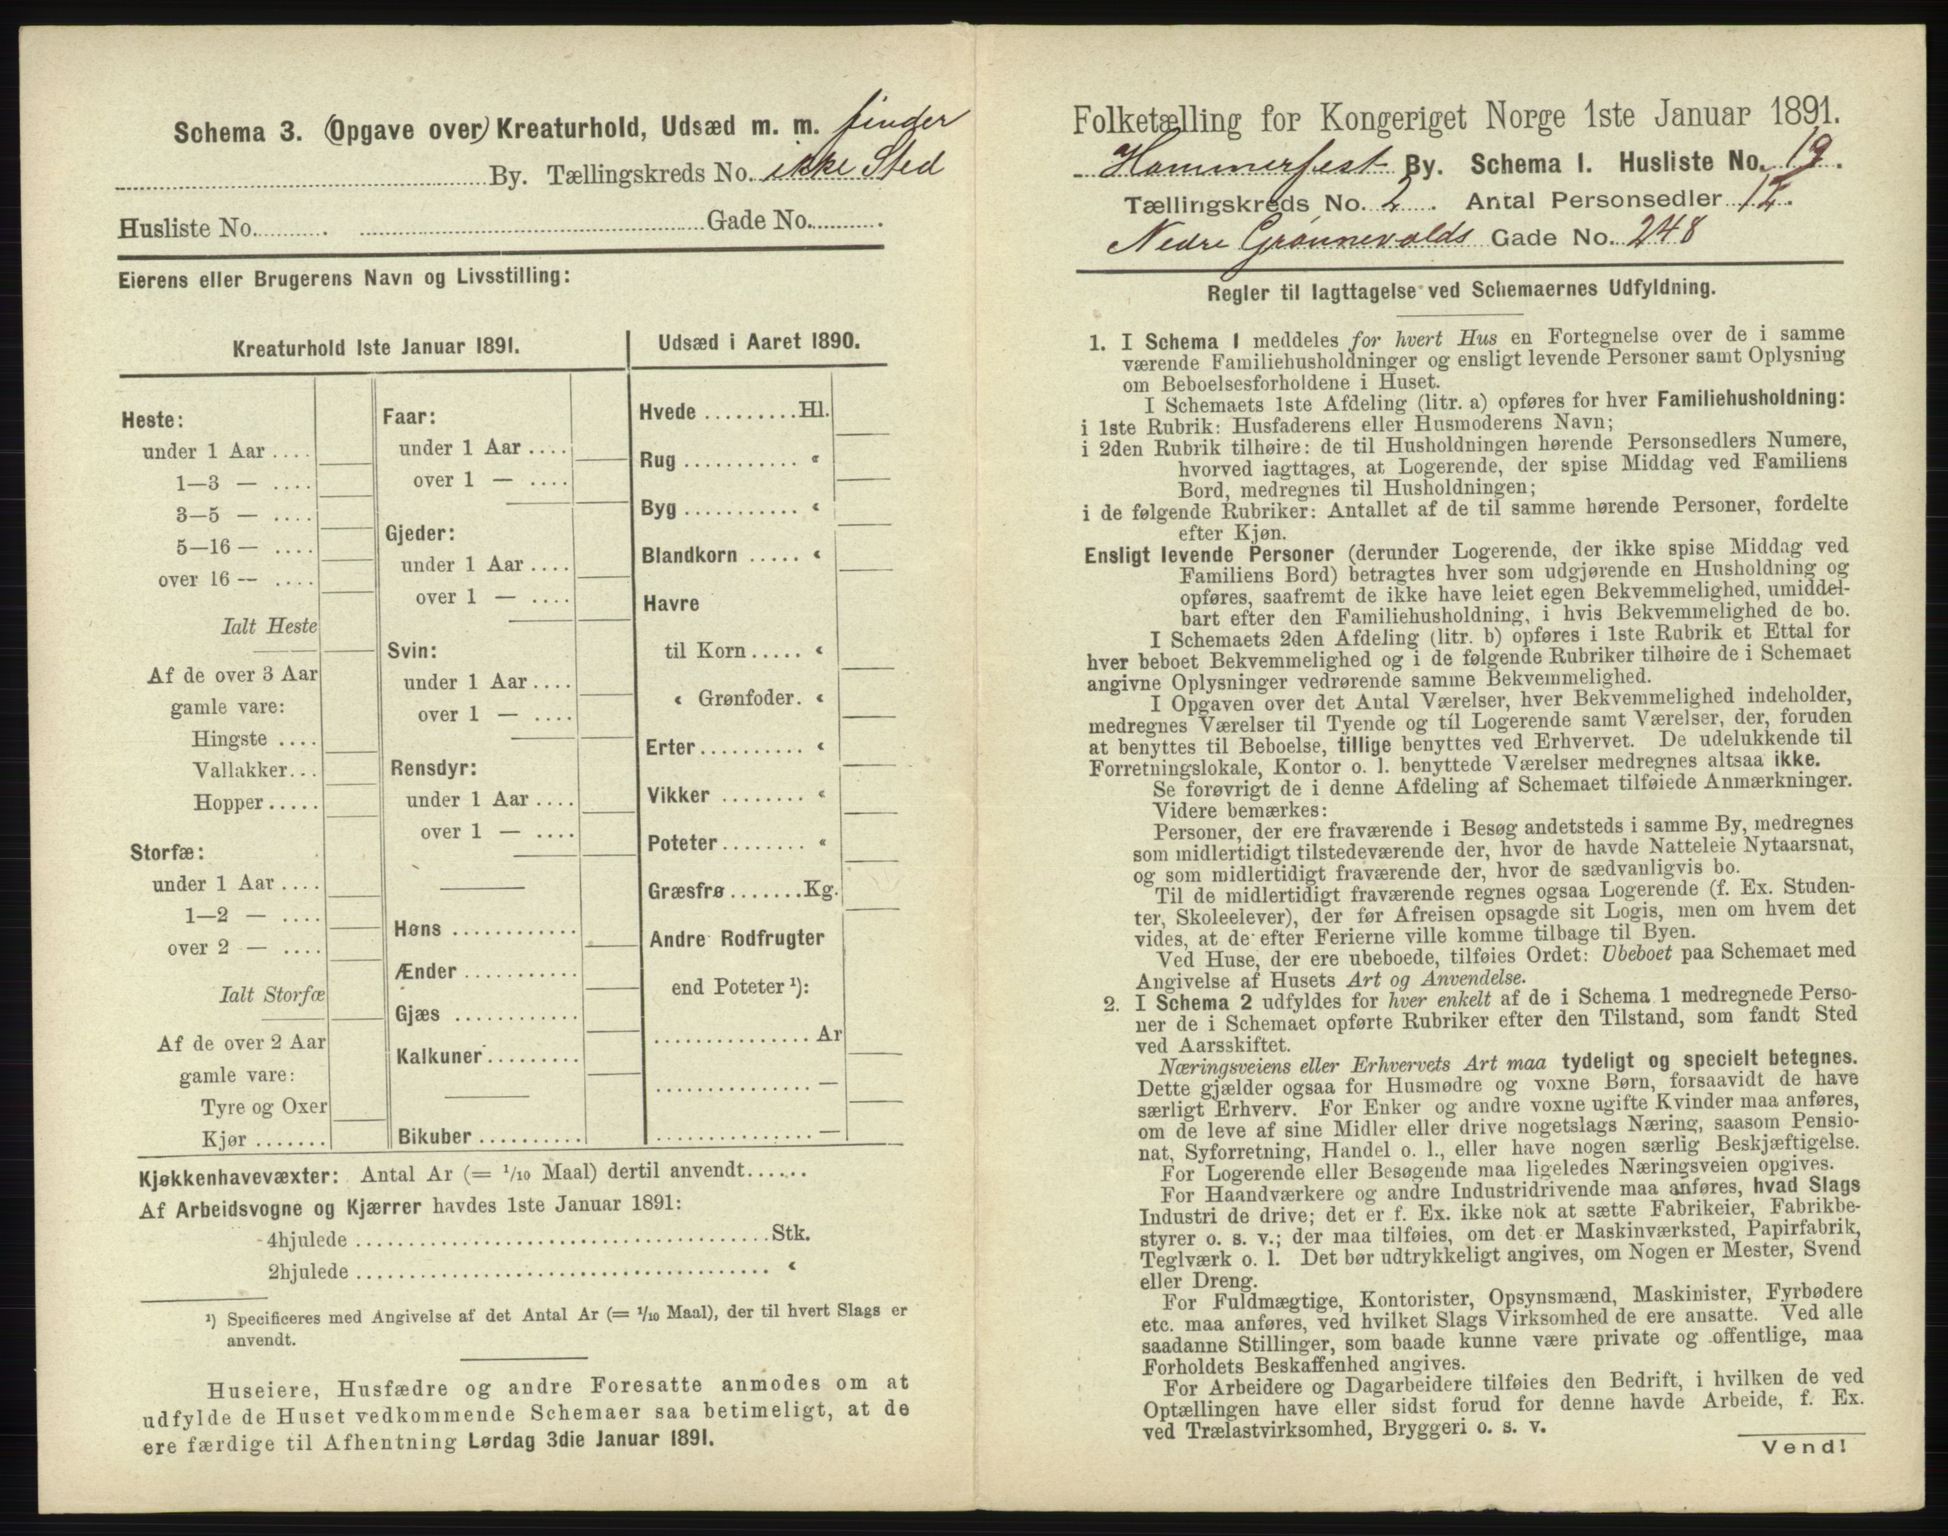 Schema 3. (Opgave over) Kreaturhold, Udsæd m. m. finder
By. Tællingskreds No. ikke Sted
Husliste No. Gade No.
Eierens eller Brugerens Navn og Livsstilling:
Kreaturhold 1ste Januar 1891.
Heste:
under 1 Aar ....
1—3 — ....
3—5 — ....
5—16 — ....
over 16 — ....
Ialt Heste
Af de over 3 Aar
gamle vare:
Hingste ....
Vallakker...
Hopper .....
Storfæ:
under 1 Aar ....
1—2 — ....
over 2 — ....
Ialt Storfæ
Af de over 2 Aar
gamle vare:
Tyre og Oxer
Kjør .......
Faar:
under 1 Aar ....
over 1 — ....
Gjeder:
under 1 Aar ....
over 1 — ....
Svin:
under 1 Aar ....
over 1 — ....
Rensdyr:
under 1 Aar ....
over 1 — ....
Høns ............
Ænder ...........
Gjæs ............
Kalkuner.........
Bikuber ..........
Udsæd i Aaret 1890.
Hvede .........Hl.
Rug ........... «
Byg ........... «
Blandkorn ..... «
Havre
til Korn ..... «
« Grønfoder. «
Erter.......... «
Vikker ........ «
Poteter........ «
Græsfrø .......Kg.
Andre Rodfrugter
end Poteter ¹):
............... Ar
............... —
............... —
Kjøkkenhavevæxter: Antal Ar (= 1/10 Maal) dertil anvendt......
Af Arbeidsvogne og Kjærrer havdes 1ste Januar 1891:
4hjulede ....................................... Stk.
2hjulede ....................................... «
¹) Specificeres med Angivelse af det Antal Ar (= 1/10 Maal), der til hvert Slags er
anvendt.
Huseiere, Husfædre og andre Foresatte anmodes om at
udfylde de Huset vedkommende Schemaer saa betimeligt, at de
ere færdige til Afhentning Lørdag 3die Januar 1891.
Folketælling for Kongeriget Norge 1ste Januar 1891.
Hammerfest By. Schema I. Husliste No. 19.
Tællingskreds No. 2. Antal Personsedler 12.
Nedre Grønnevolds Gade No. 248
Regler til Iagttagelse ved Schemaernes Udfyldning.
1. I Schema 1 meddeles for hvert Hus en Fortegnelse over de i samme
værende Familiehusholdninger og ensligt levende Personer samt Oplysning
om Beboelsesforholdene i Huset.
I Schemaets 1ste Afdeling (litr. a) opføres for hver Familiehusholdning:
i 1ste Rubrik: Husfaderens eller Husmoderens Navn;
i 2den Rubrik tilhøire: de til Husholdningen hørende Personsedlers Numere,
hvorved iagttages, at Logerende, der spise Middag ved Familiens
Bord, medregnes til Husholdningen;
i de følgende Rubriker: Antallet af de til samme hørende Personer, fordelte
efter Kjøn.
Ensligt levende Personer (derunder Logerende, der ikke spise Middag ved
Familiens Bord) betragtes hver som udgjørende en Husholdning og
opføres, saafremt de ikke have leiet egen Bekvemmelighed, umiddel-
bart efter den Familiehusholdning, i hvis Bekvemmelighed de bo.
I Schemaets 2den Afdeling (litr. b) opføres i 1ste Rubrik et Ettal for
hver beboet Bekvemmelighed og i de følgende Rubriker tilhøire de i Schemaet
angivne Oplysninger vedrørende samme Bekvemmelighed.
I Opgaven over det Antal Værelser, hver Bekvemmelighed indeholder,
medregnes Værelser til Tyende og til Logerende samt Værelser, der, foruden
at benyttes til Beboelse, tillige benyttes ved Erhvervet. De udelukkende til
Forretningslokale, Kontor o. l. benyttede Værelser medregnes altsaa ikke.
Se forøvrigt de i denne Afdeling af Schemaet tilføiede Anmærkninger.
Videre bemærkes:
Personer, der ere fraværende i Besøg andetsteds i samme By, medregnes
som midlertidigt tilstedeværende der, hvor de havde Natteleie Nytaarsnat,
og som midlertidigt fraværende der, hvor de sædvanligvis bo.
Til de midlertidigt fraværende regnes ogsaa Logerende (f. Ex. Studen-
ter, Skoleelever), der før Afreisen opsagde sit Logis, men om hvem det
vides, at de efter Ferierne ville komme tilbage til Byen.
Ved Huse, der ere ubeboede, tilføies Ordet: Ubeboet paa Schemaet med
Angivelse af Husets Art og Anvendelse.
2. I Schema 2 udfyldes for hver enkelt af de i Schema 1 medregnede Perso-
ner de i Schemaet opførte Rubriker efter den Tilstand, som fandt Sted
ved Aarsskiftet.
Næringsveiens eller Erhvervets Art maa tydeligt og specielt betegnes.
Dette gjælder ogsaa for Husmødre og voxne Børn, forsaavidt de have
særligt Erhverv. For Enker og andre voxne ugifte Kvinder maa anføres,
om de leve af sine Midler eller drive nogetslags Næring, saasom Pensio-
nat, Syforretning, Handel o. l., eller have nogen særlig Beskjæftigelse.
For Logerende eller Besøgende maa ligeledes Næringsveien opgives.
For Haandværkere og andre Industridrivende maa anføres, hvad Slags
Industri de drive; det er f. Ex. ikke nok at sætte Fabrikeier, Fabrikbe-
styrer o. s. v.; der maa tilføies, om det er Maskinværksted, Papirfabrik,
Teglværk o. l. Det bør udtrykkeligt angives, om Nogen er Mester, Svend
eller Dreng.
For Fuldmægtige, Kontorister, Opsynsmænd, Maskinister, Fyrbødere
etc. maa anføres, ved hvilket Slags Virksomhed de ere ansatte. Ved alle
saadanne Stillinger, som baade kunne være private og offentlige, maa
Forholdets Beskaffenhed angives.
For Arbeidere og Dagarbeidere tilføies den Bedrift, i hvilken de ved
Optællingen have eller sidst forud for denne havde Arbeide, f. Ex.
ved Trælastvirksomhed, Bryggeri o. s. v.
Vend!